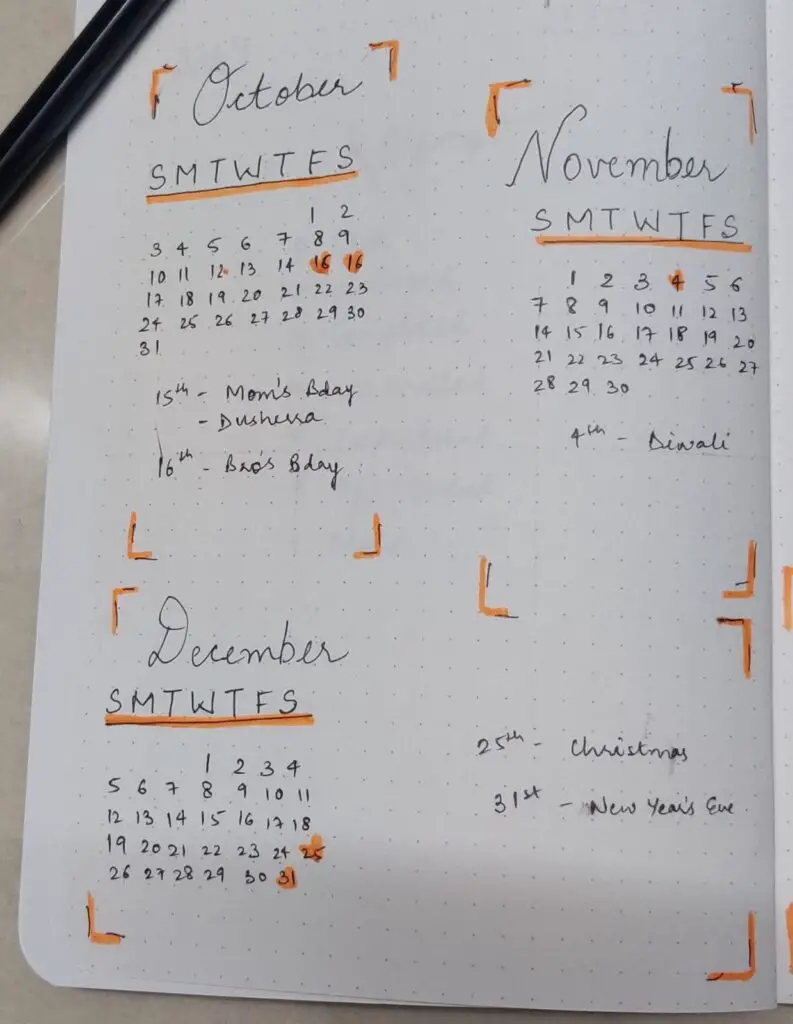 October
S M T W T F S
1 2
3 4 5 6 7 8 9
10 11 12 13 14 16 16
17 18 19 20 21 22 23
24 25 26 27 28 29 30
31
15th - Mom's Bday
- Dusherra
16th - Bro's Bday
November
S M T W T F S
1 2 3 4 5 6
7 8 9 10 11 12 13
14 15 16 17 18 19 20
21 22 23 24 25 26 27
28 29 30
4th - Diwali
December
S M T W T F S
1 2 3 4
5 6 7 8 9 10 11
12 13 14 15 16 17 18
19 20 21 22 23 24 25
26 27 28 29 30 31
25th - Christmas
31st - New Year's Eve